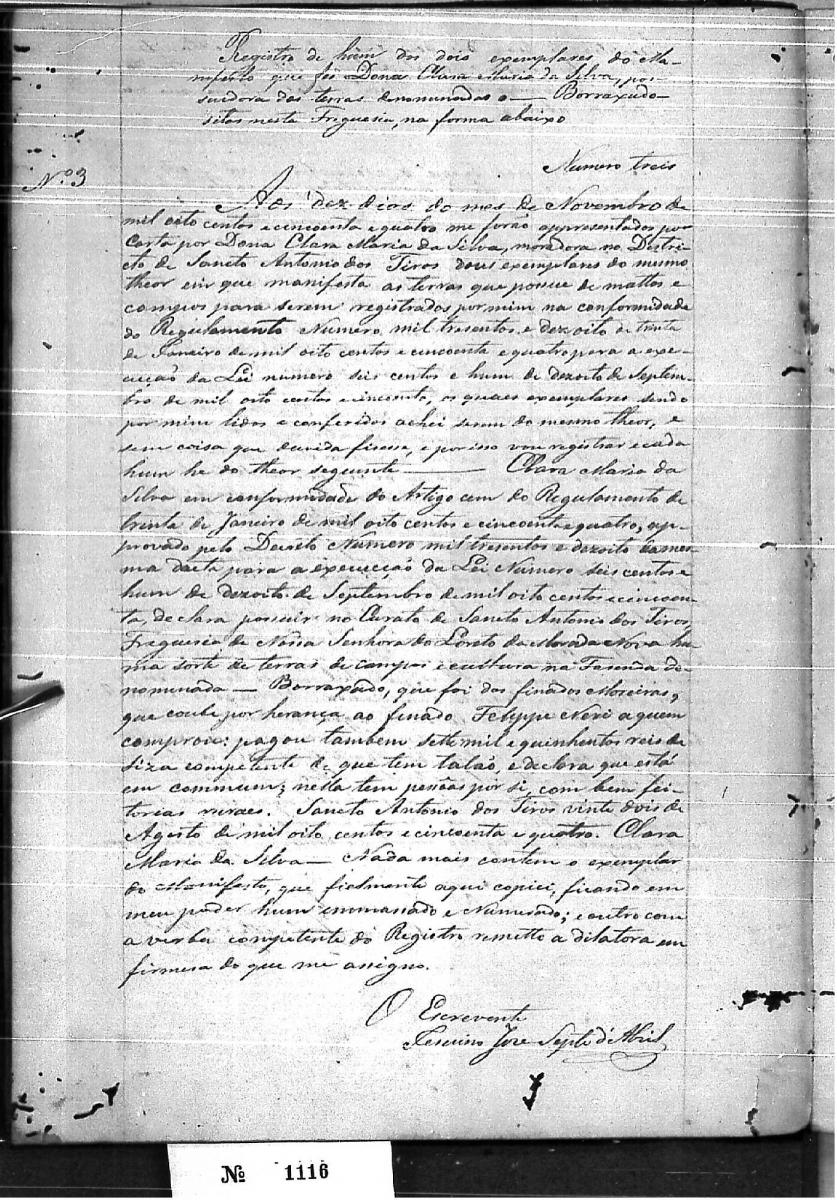 Registro de hum dos dois exemplares do Ma-
nifesto que fes Dona Clara Maria da Silva, pos-
suidora das terras denominadas o — Borraxudo
sitas nesta Freguesia, na forma abaixo
Numero treis
Nº 3
Aos dez dias do mes de Novembro de
mil oito centos e cincoenta e quatro me forão appresentados por
Carta por Dona Clara Maria da Silva, moradora no Distri-
cto de Sancto Antonio dos Tiros dous exemplares do mesmo
theor em que manifesta as terras que possue de mattos e
campos para serem registrados por mim na conformidade
do Regulamento Numero mil tresentos e dezoito de trinta
de Janeiro de mil oito centos e cincoenta e quatro para a exe-
cucção da Lei numero seis centos e hum de dezoito de Septem-
bro de mil oito centos e cincoenta, os quaes exemplares sendo
por mim lidos e conferidos achei serem do mesmo theor, e
sem coisa que duvida fisesse, e por isso vou registrar e cada
hum he do theor seguinte — Clara Maria da
Silva em conformidade do Artigo cem do Regulamento de
trinta de Janeiro de mil oito centos e cincoenta e quatro, ap-
provado pelo Decreto Numero mil tresentos e dezoito da mes-
ma dacta para a execucção da Lei Numero seis centos e
hum de dezoito de Septembro de mil oito centos e cincoen-
ta, declara possuir no Curato de Sancto Antonio dos Tiros,
Freguesia de Nossa Senhora do Loreto da Morada Nova hu-
ma sorte de terras de campos e cultura na Fasenda de-
nominada — Borraxudo, que foi dos finados Moreiras,
que coube por herança ao finado Felippe Neri a quem
comprou: pagou tambem sette mil e quinhentos reis de
siza competente de que tem talão, e declara que está
em commum; nella tem por si, com bem fei-
torias ruraes. Sancto Antonio dos Tiros vinte dois de
Agosto de mil oito centos e cincoenta e quatro. Clara
Maria da Silva — Nada mais contem o exemplar
do Manifesto, que fielmente aqui copiei, ficando em
meu poder hum emmassado e Numerado; e outro com
a verba competente do Registro remetto a dilatora em
firmesa do que me assigno.
O Escrevente
Jose Septe d'Abril
Nº 1116